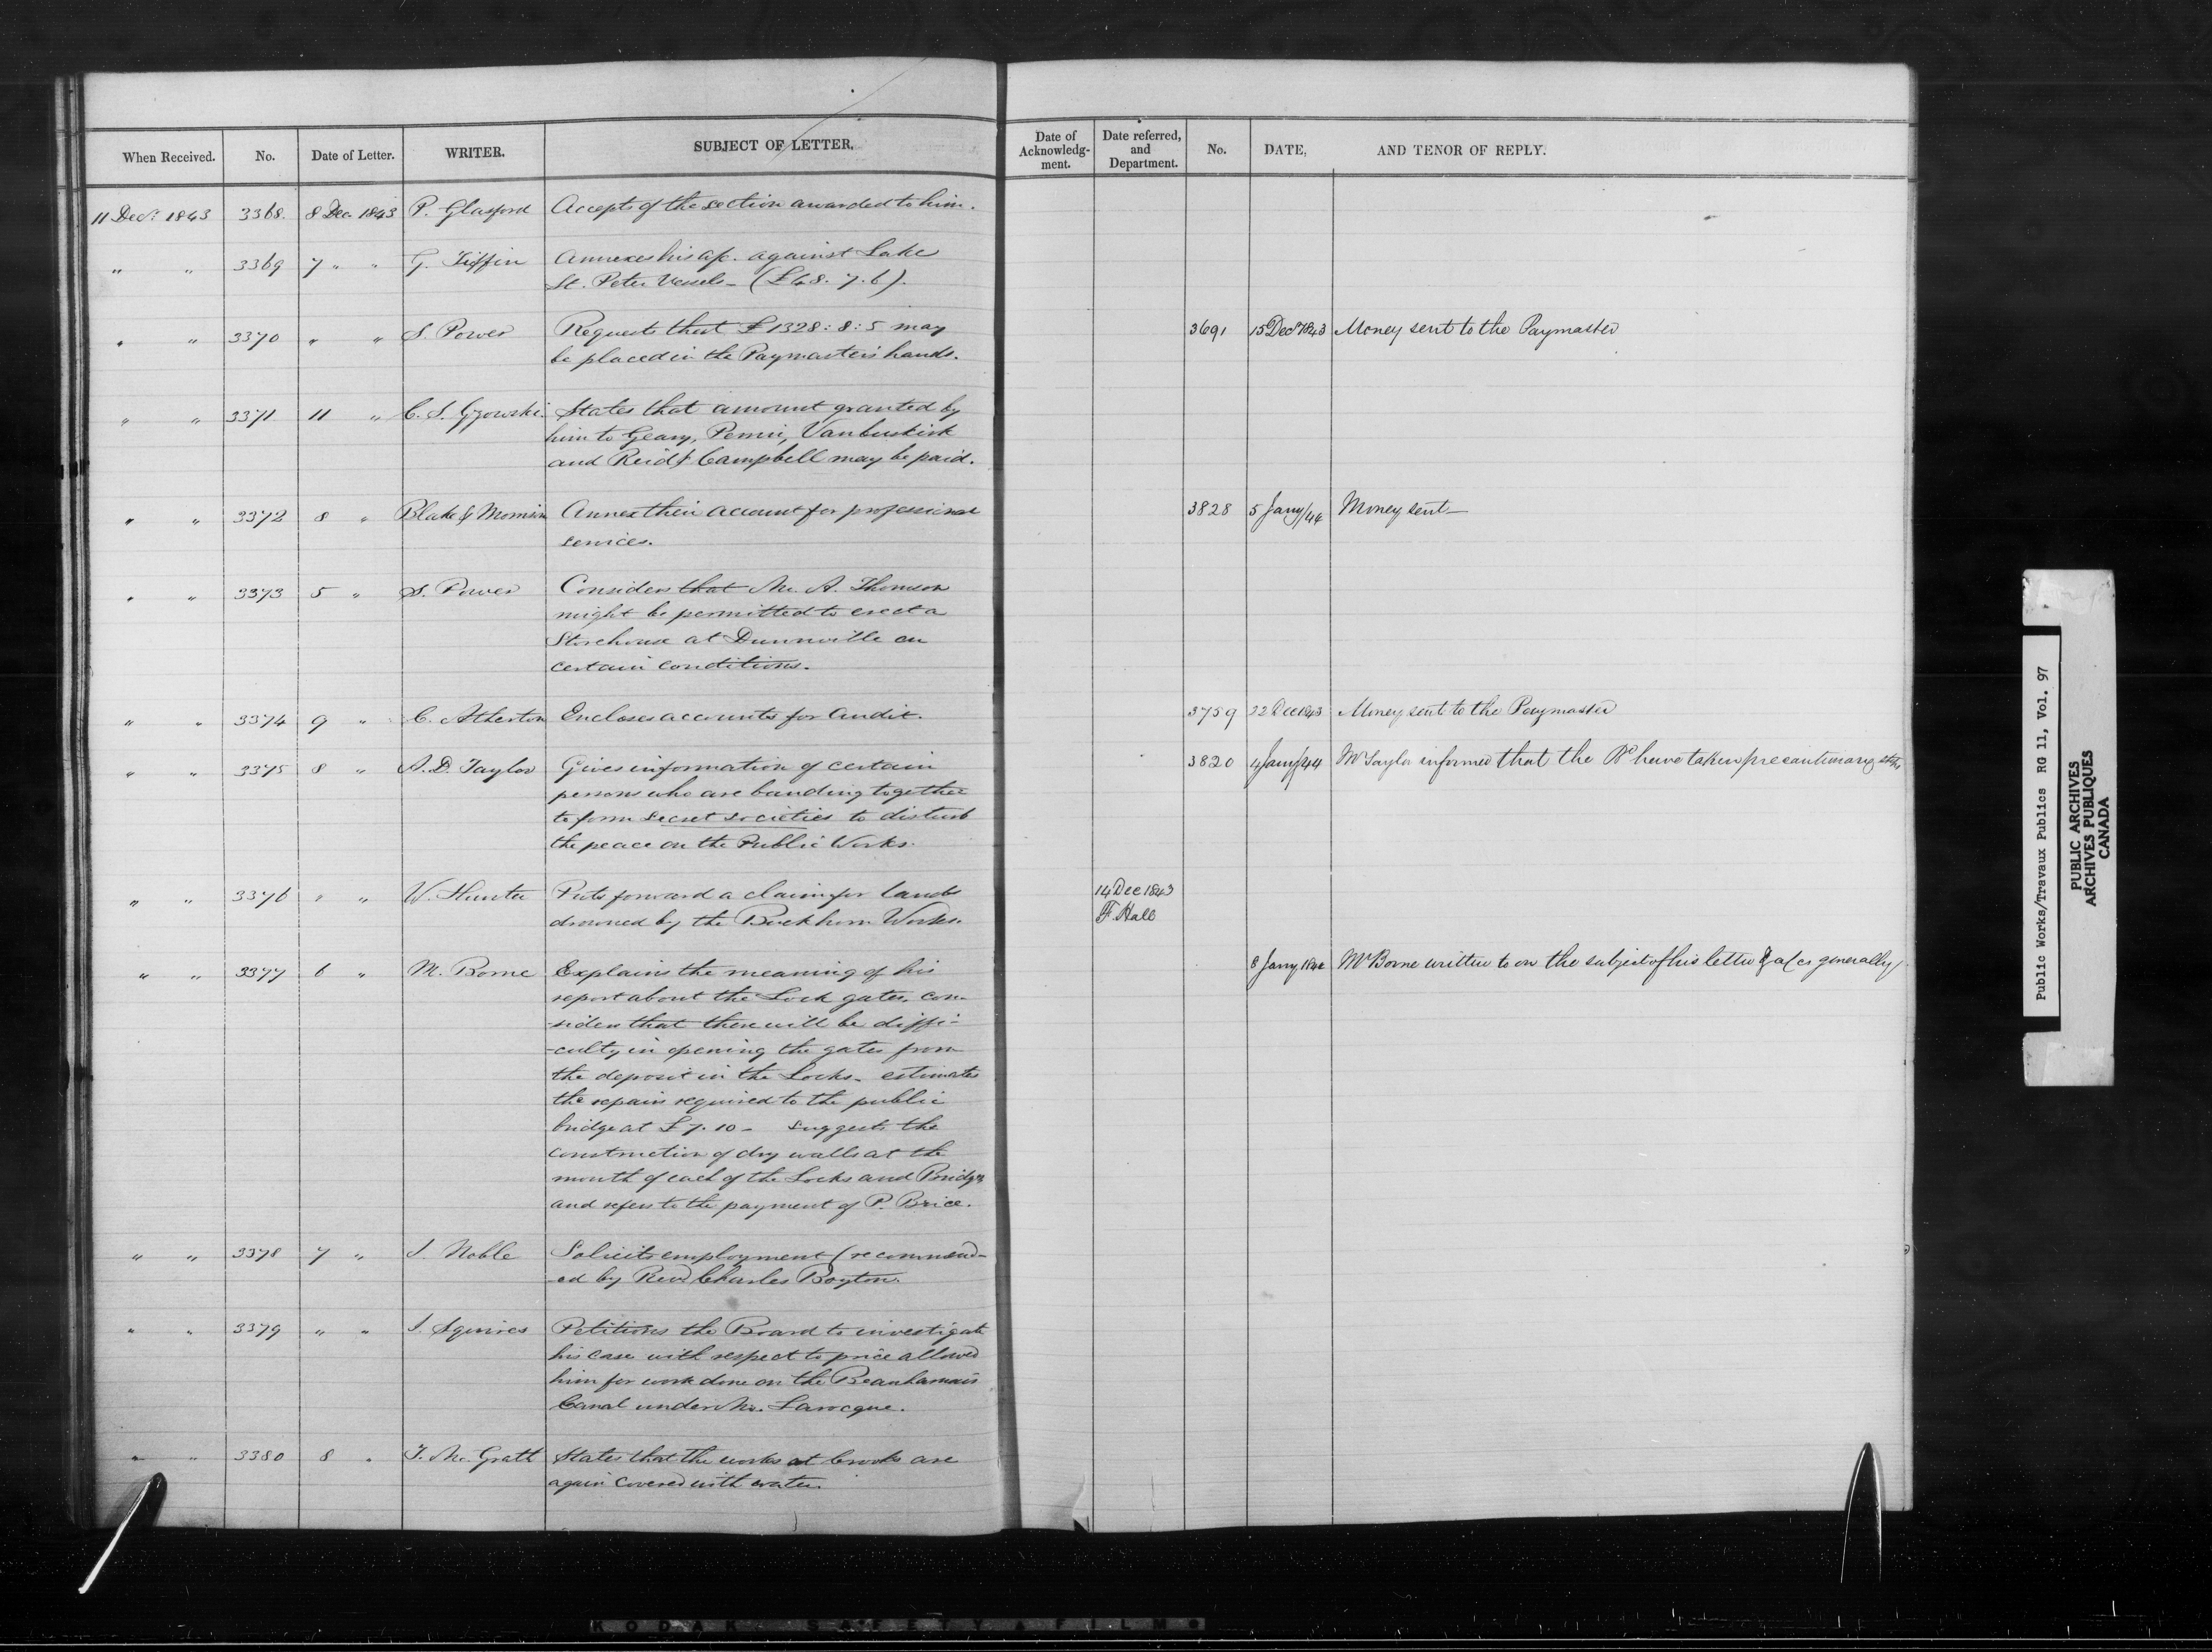 When Received. No. Date of Letter. WRITER. SUBJECT OF LETTER. Date of Acknowledg-ment. Date referred, and Department. No. DATE, AND TENOR OF REPLY.
11 Decr. 1843 3368. 8 Dec 1843 P. Glasford Accepts of the section awarded to him.
" " 3369 7 " " G. Tiffin Annexes his a/c. against Lake
St. Peter Vessels - (£68. 7. 6).
" " 3370 " " S. Power Requests that £1328: 8: 5 may 3691 15 Decr 1843 Money sent to the Paymaster
be placed in the Paymaster's hands.
" " 3371 11 " C. S. Gzowski. States that amount granted by
him to Geary, Pennie, Vanbuskirk
and Reid & Campbell may be paid.
" " 3372 8 " Blake & Morrison Annex their account for professional 3828 5 Jany/44 Money sent -
services.
" " 3373 5 " S. Power Considers that Mr. A. Thomson
might be permitted to erect a
Storehouse at Dunnville on
certain conditions.
" " 3374 9 " C. Atherton Encloses accounts for audit. 3759 22 Dec 1843 Money sent to the Paymaster
" " 3375 8 " A. D. Taylor Gives information of certain 3820 4 Jany/44 Mr Taylor informed that the Bd have taken precautionary steps
persons who are banding together
to form secret societies to disturb
the peace on the Public Works.
" " 3376 " " W. Hunter Puts forward a claim for lands 14 Dec 1843
drowned by the Buckhorn Works. F. Hall
" " 3377 6 " M. Borne Explains the meaning of his 8 Jany 1844 Mr Borne written to on the subject of his letter & a/cs generally
report about the Lock gates. con-
-siders that there will be diffi-
-culty in opening the gates from
the deposit in the Locks - estimates
the repairs required to the public
bridge at £7. 10 - suggests the
construction of dry walls at the
mouth of each of the Locks and Bridges
and refers to the payment of P. Brice.
" " 3378 7 " J. Noble Solicits employment (recommend-
-ed by Revd Charles Boyton.
" " 3379 " " J. Squires Petitions the Board to investigate
his case with respect to price allowed
him for work done on the Beauharnais
Canal under Mr. Larocque.
" " 3380 8 " T. McGrath States that the works at Crooks are
again covered with water.
Public Works/Travaux Publics RG 11, Vol. 97
PUBLIC ARCHIVES
ARCHIVES PUBLIQUES
CANADA
KODAK SAFETY FILM